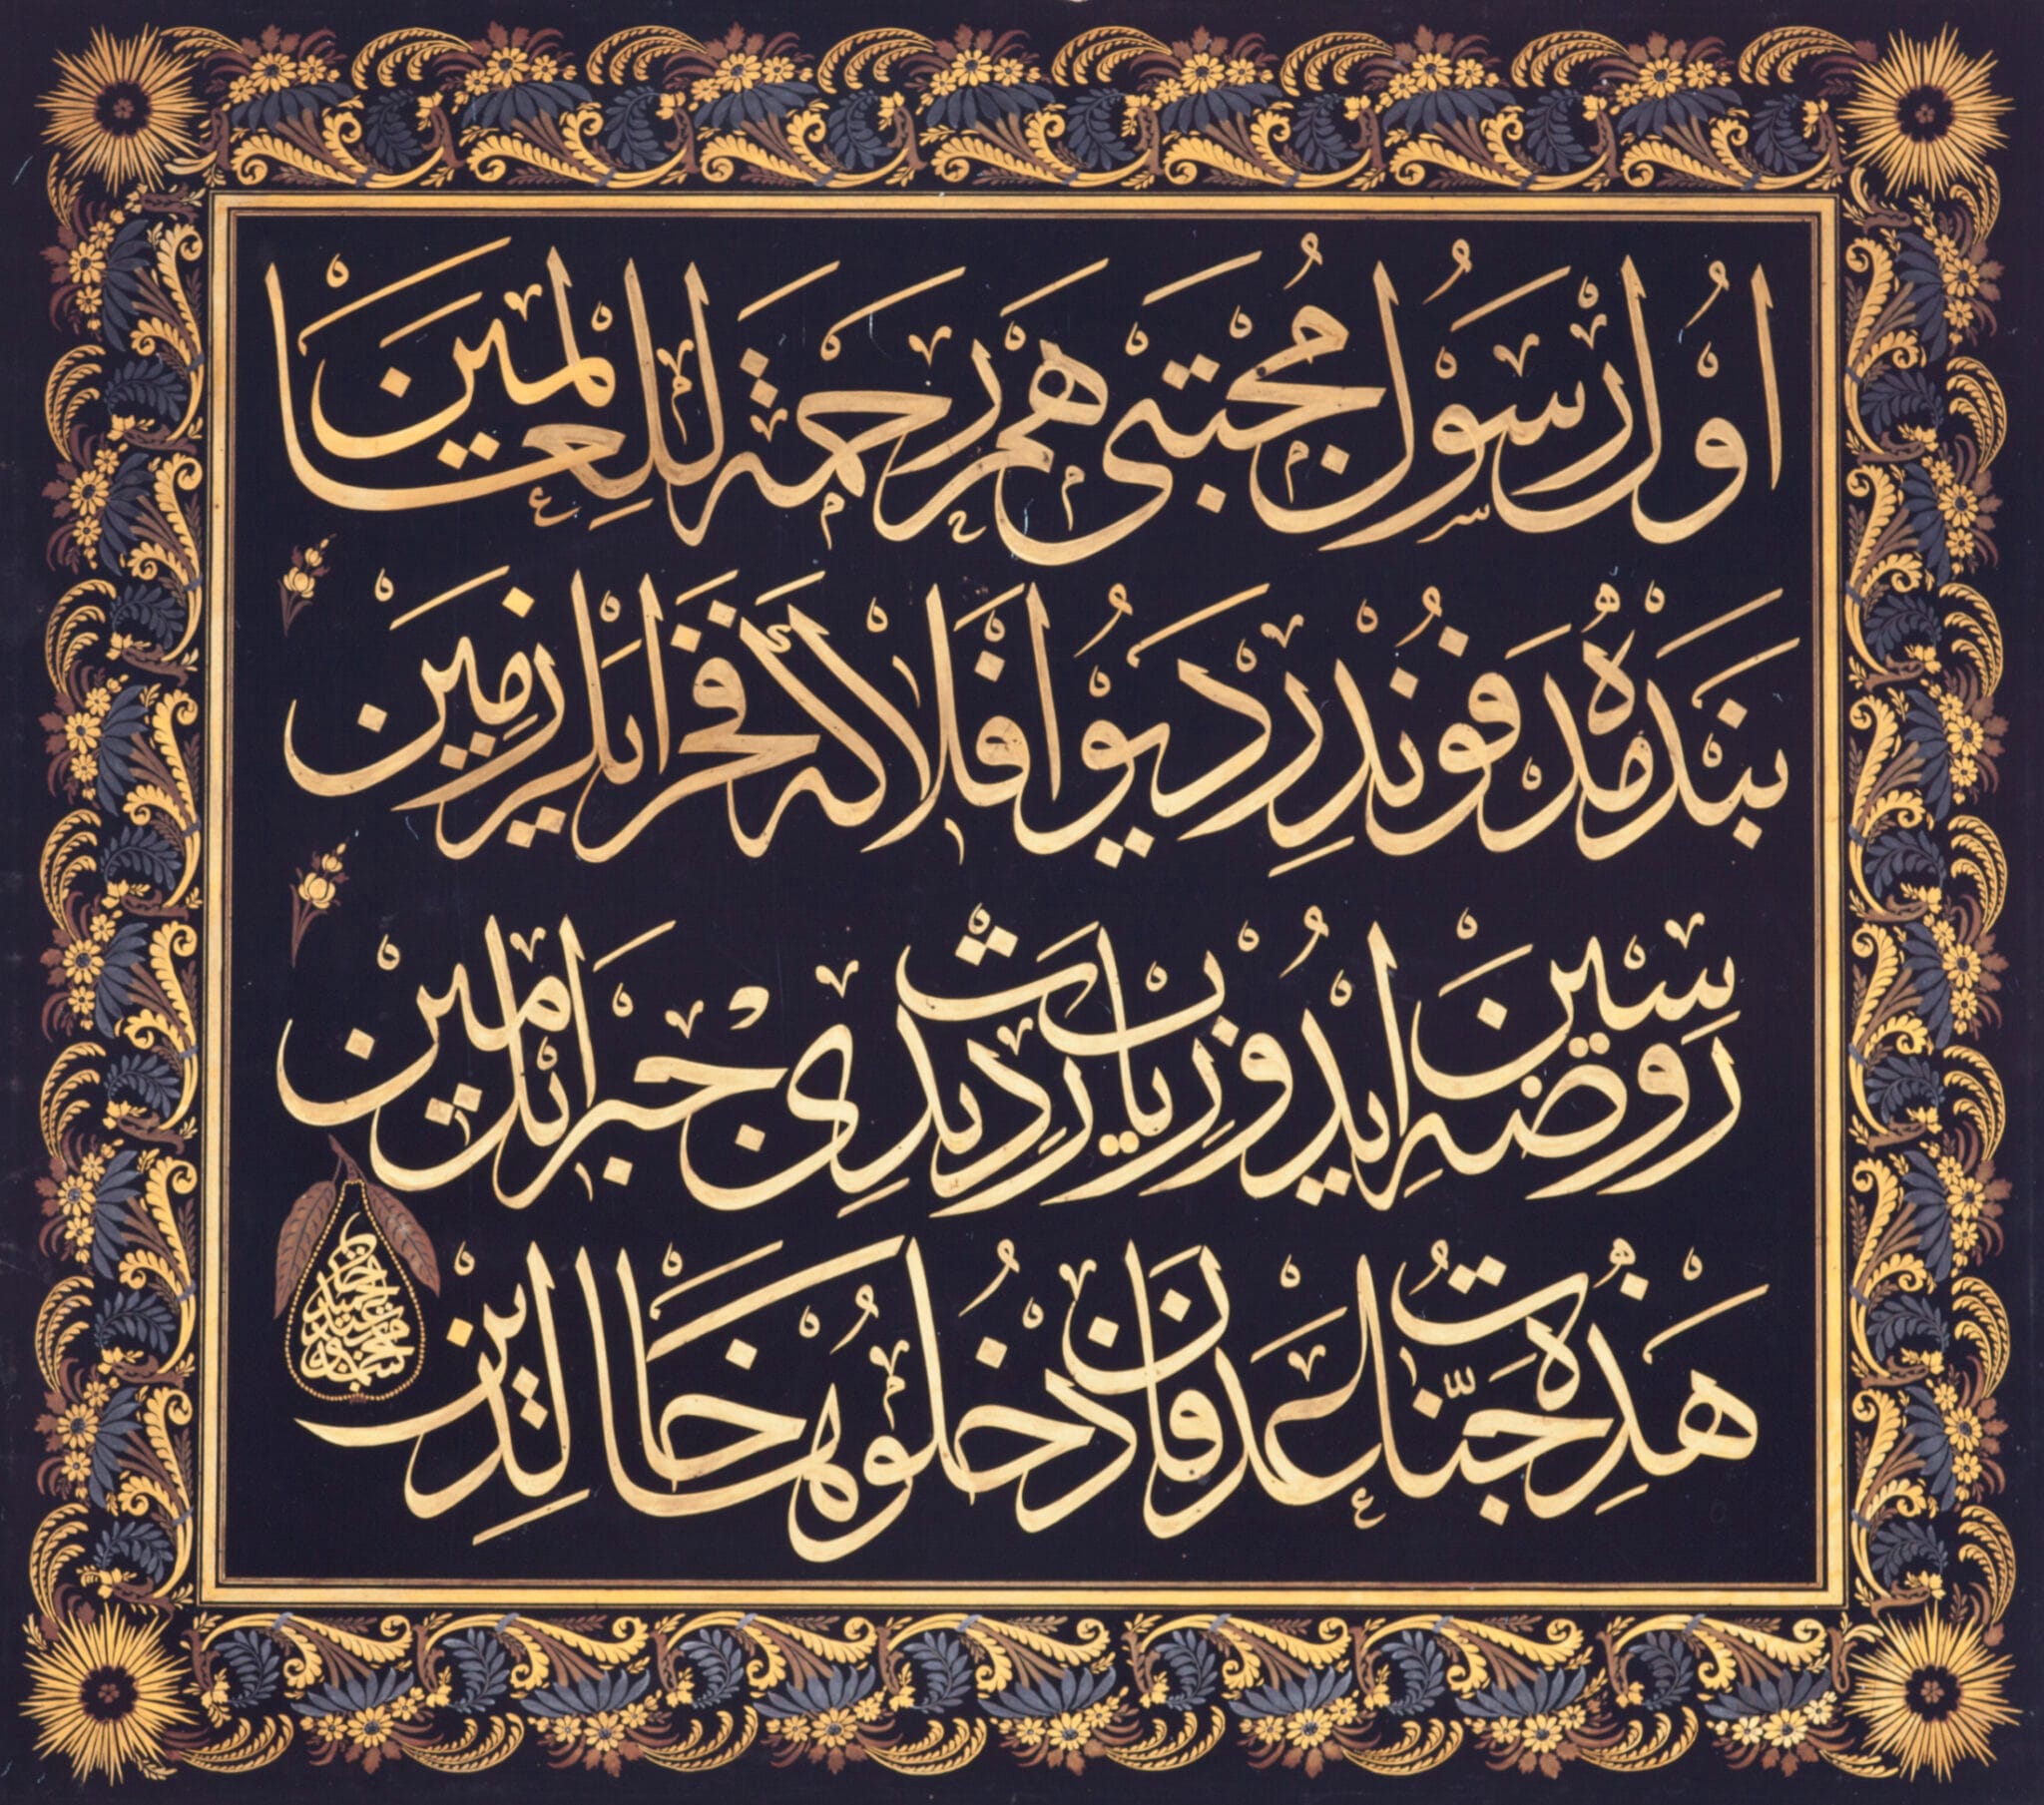 اول رسول مجتبى هم رحمة للعالمينا
بنده مدفوندر ديو افلاكه فخر ايلر زمين
روضه سين ايدوب زيارت ديدى جبرائيل امين
هذه جنات عدن فادخلوها خالدين